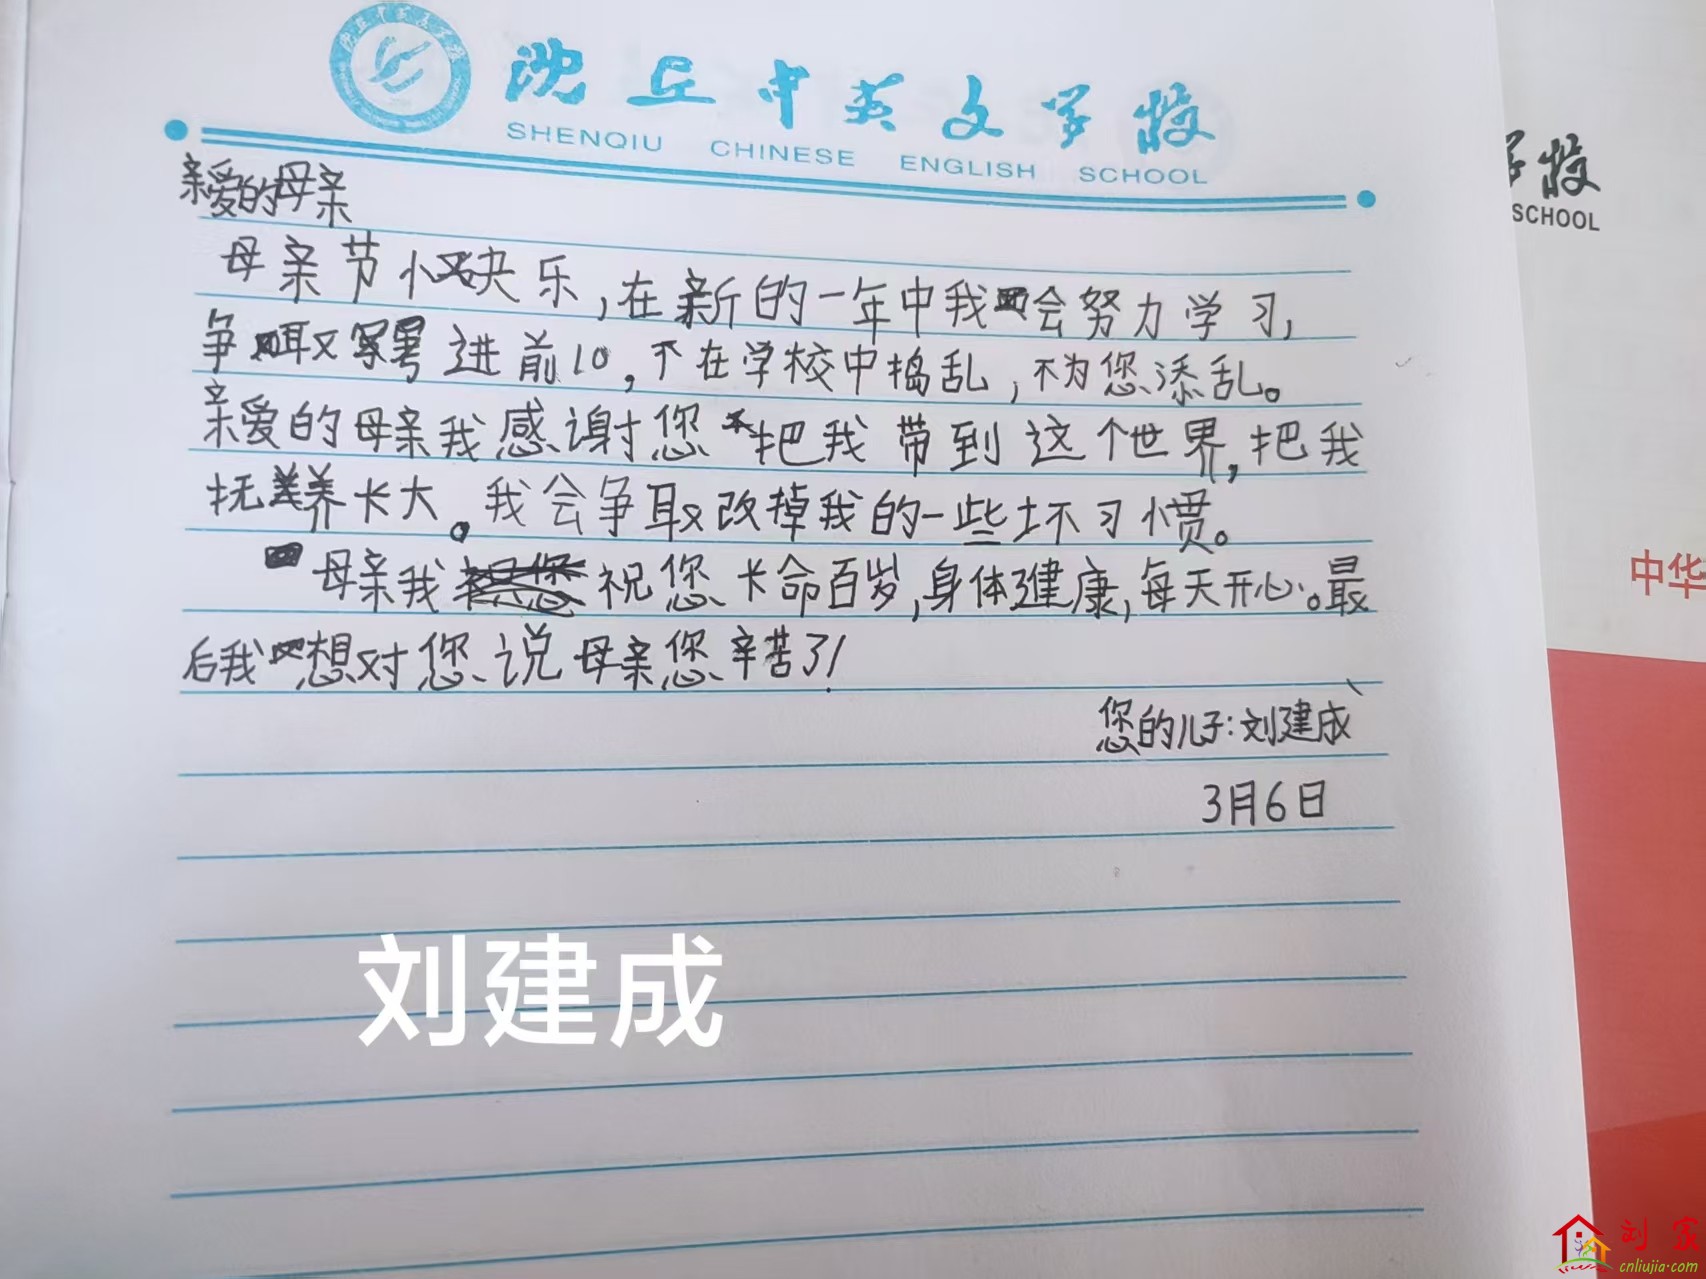 沈丘中英文学校
SHENQIU CHINESE ENGLISH SCHOOL
学校
SCHOOL
亲爱的母亲
母亲节快乐,在新的一年中我会努力学习,
争取考进前10,不在学校中捣乱,不为您添乱。
亲爱的母亲我感谢您把我带到这个世界,把我
抚养长大。我会争取改掉我的一些坏习惯。
母亲我祝您长命百岁,身体健康,每天开心。最
后我想对您说母亲您辛苦了!
您的儿子:刘建成
3月6日
中华
刘建成
刘家
cnliujia.com